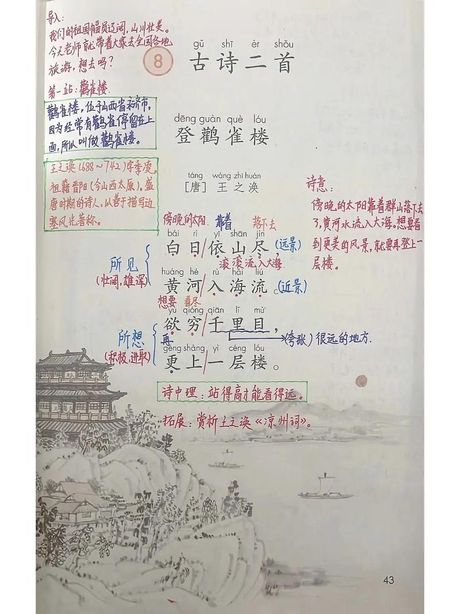 导入:
我们的祖国幅员辽阔,山川壮美。
今天老师就带着大家去全国各地
旅游,想去吗?
第一站:鹳雀楼
鹳雀楼,位于山西省永济市,
因为经常有鹳雀停留在上
面,所以叫做鹳雀楼。
王之涣(688~742)字季凌。
祖籍晋阳(今山西太原),盛
唐时期的诗人,以善于描写边
塞风光著称。
gǔ shī èr shǒu
8 古诗二首
dēng guàn què lóu
登鹳雀楼
táng wáng zhī huàn
[唐] 王之涣
诗意:
傍晚的太阳靠着群山落下去
了,黄河水流入大海。想要看
到更美的风景,就要再登上一
层楼。
傍晚的太阳 靠着 落下去
bái rì yī shān jìn
白日/依山尽 (远景)
滚滚流入大海
huáng hé rù hǎi liú
黄河/入海流。(近景)
所见
(壮阔,雄浑)
想要 看尽
yù qióng qiān lǐ mù
欲穷/千里目,
(夸张)很远的地方
再
gèng shàng yì céng lóu
更上/一层楼。
所想
(积极,进取)
诗中理:站得高才能看得远。
拓展:赏析王之涣《凉州词》。
43